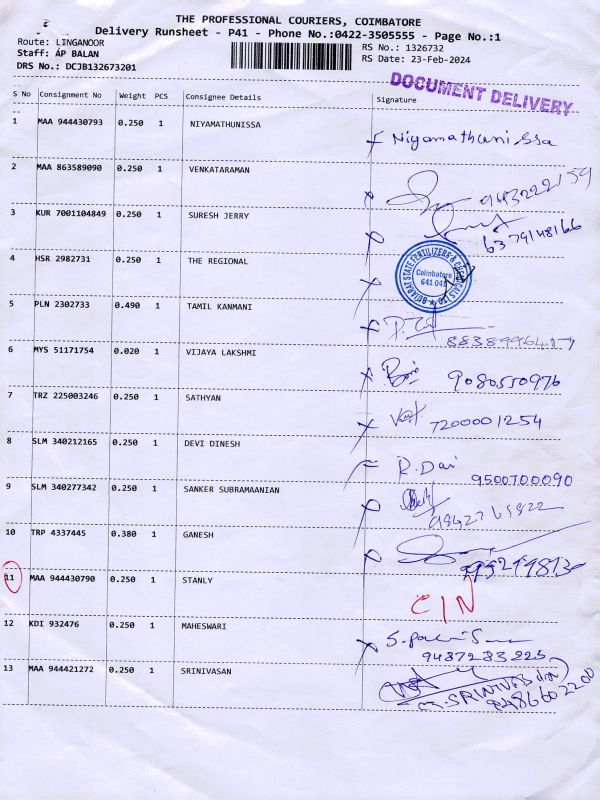 THE PROFESSIONAL COURIERS, COIMBATORE
Delivery Runsheet - P41 - Phone No.:0422-3505555 - Page No.:1
Route: LINGANOOR
Staff: AP BALAN
DRS No.: DCJB132673201
RS No.: 1326732
RS Date: 23-Feb-2024
DOCUMENT DELIVERY
S No Consignment No Weight PCS Consignee Details Signature
1 MAA 944430793 0.250 1 NIYAMATHUNISSA Niyamathunissa
2 MAA 863589090 0.250 1 VENKATARAMAN
3 KUR 7001104849 0.250 1 SURESH JERRY 6379148166
4 HSR 2982731 0.250 1 THE REGIONAL
GUJARAT STATE FERTILIZERS & CHEMICALS LTD
Coimbatore
641 041
5 PLN 2302733 0.490 1 TAMIL KANMANI
6 MYS 51171754 0.020 1 VIJAYA LAKSHMI 9080550976
7 TRZ 225003246 0.250 1 SATHYAN 7200001254
8 SLM 340212165 0.250 1 DEVI DINESH R. Dai 9500700090
9 SLM 340277342 0.250 1 SANKER SUBRAMAANIAN
10 TRP 4337445 0.380 1 GANESH
11 MAA 944430790 0.250 1 STANLY C/N
12 KDI 932476 0.250 1 MAHESWARI
9487283225
13 MAA 944421272 0.250 1 SRINIVASAN
9486602200